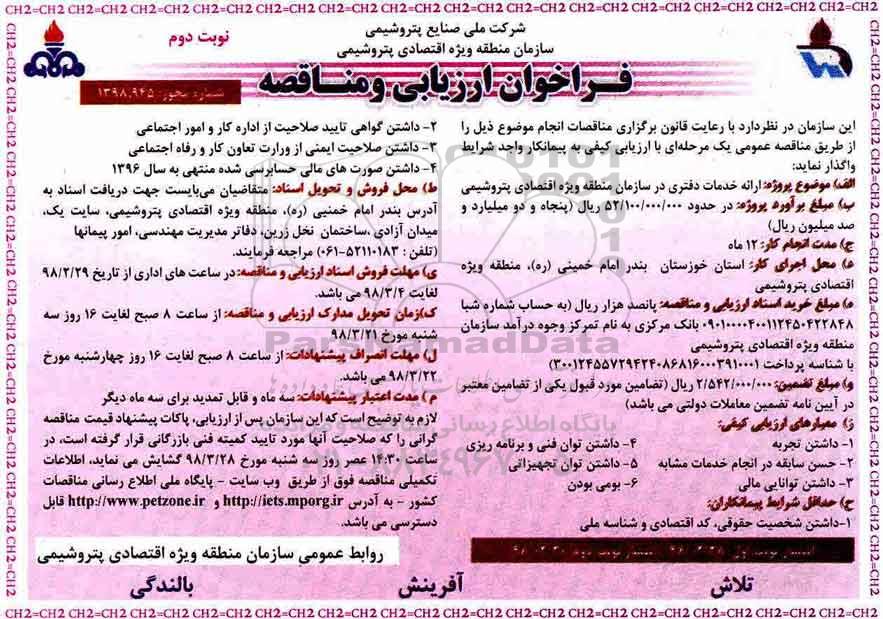 CH2=CH2 CH2=CH2 CH2=CH2 CH2=CH2 CH2=CH2 CH2=CH2 CH2=CH2 CH2=CH2 CH2=CH2 CH2=CH2 CH2=CH2 CH2=CH2
شرکت ملی صنایع پتروشیمی
سازمان منطقه ویژه اقتصادی پتروشیمی
نوبت دوم
فراخوان ارزیابی ومناقصه
شماره مجوز: ۱۳۹۸,۹۴۵
این سازمان در نظردارد با رعایت قانون برگزاری مناقصات انجام موضوع ذیل را
از طریق مناقصه عمومی یک مرحله‌ای با ارزیابی کیفی به پیمانکار واجد شرایط
واگذار نماید:
الف) موضوع پروژه: ارائه خدمات دفتری در سازمان منطقه ویژه اقتصادی پتروشیمی
ب) مبلغ برآورد پروژه: در حدود ۵۲/۱۰۰/۰۰۰/۰۰۰ ریال (پنجاه و دو میلیارد و
صد میلیون ریال)
ج) مدت انجام کار: ۱۲ ماه
د) محل اجرای کار: استان خوزستان بندر امام خمینی (ره)، منطقه ویژه
اقتصادی پتروشیمی
ه) مبلغ خرید اسناد ارزیابی و مناقصه: پانصد هزار ریال (به حساب شماره شبا
۰۹۰۱۰۰۰۰۴۰۰۱۱۲۴۵۰۴۲۲۸۴۸ بانک مرکزی به نام تمرکز وجوه درآمد سازمان
منطقه ویژه اقتصادی پتروشیمی
با شناسه پرداخت ۳۰۰۱۲۴۵۵۷۲۹۴۲۴۰۸۶۸۱۶۰۰۰۳۹۱۰۰۱)
و) مبلغ تضمین: ۲/۵۴۲/۰۰۰/۰۰۰ ریال (تضامین مورد قبول یکی از تضامین معتبر
در آیین نامه تضمین معاملات دولتی می باشد)
ز) معیارهای ارزیابی کیفی:
۱- داشتن تجربه ۴- داشتن توان فنی و برنامه ریزی
۲- حسن سابقه در انجام خدمات مشابه ۵- داشتن توان تجهیزاتی
۳- داشتن توانایی مالی ۶- بومی بودن
ح) حداقل شرایط پیمانکاران:
۱-داشتن شخصیت حقوقی، کد اقتصادی و شناسه ملی
۲- داشتن گواهی تایید صلاحیت از اداره کار و امور اجتماعی
۳- داشتن صلاحیت ایمنی از وزارت تعاون کار و رفاه اجتماعی
۴- داشتن صورت های مالی حسابرسی شده منتهی به سال ۱۳۹۶
ط) محل فروش و تحویل اسناد: متقاضیان می‌بایست جهت دریافت اسناد به
آدرس بندر امام خمینی (ره)، منطقه ویژه اقتصادی پتروشیمی، سایت یک،
میدان آزادی ،ساختمان نخل زرین، دفاتر مدیریت مهندسی، امور پیمانها
(تلفن : ۵۲۱۱۰۱۸۳-۰۶۱) مراجعه فرمایند.
ی) مهلت فروش اسناد ارزیابی و مناقصه: در ساعت های اداری از تاریخ ۹۸/۲/۲۹
لغایت ۹۸/۳/۴ می باشد.
ک)زمان تحویل مدارک ارزیابی و مناقصه: از ساعت ۸ صبح لغایت ۱۶ روز سه
شنبه مورخ ۹۸/۳/۲۱
ل) مهلت انصراف پیشنهادات: از ساعت ۸ صبح لغایت ۱۶ روز چهارشنبه مورخ
۹۸/۳/۲۲ می باشد.
م ) مدت اعتبار پیشنهادات: سه ماه و قابل تمدید برای سه ماه دیگر
لازم به توضیح است که این سازمان پس از ارزیابی، پاکات پیشنهاد قیمت مناقصه
گرانی را که صلاحیت آنها مورد تایید کمیته فنی بازرگانی قرار گرفته است، در
ساعت ۱۴:۳۰ عصر روز سه شنبه مورخ ۹۸/۳/۲۸ گشایش می نماید، اطلاعات
تکمیلی مناقصه فوق از طریق وب سایت - پایگاه ملی اطلاع رسانی مناقصات
کشور - به آدرس http://iets.mporg.ir و http://www.petzone.ir قابل
دسترسی می باشد.
روابط عمومی سازمان منطقه ویژه اقتصادی پتروشیمی
تلاش آفرینش بالندگی
ParsNamadData
پایگاه اطلاع رسانی
CH2=CH2 CH2=CH2 CH2=CH2 CH2=CH2 CH2=CH2 CH2=CH2 CH2=CH2 CH2=CH2 CH2=CH2 CH2=CH2 CH2=CH2 CH2=CH2